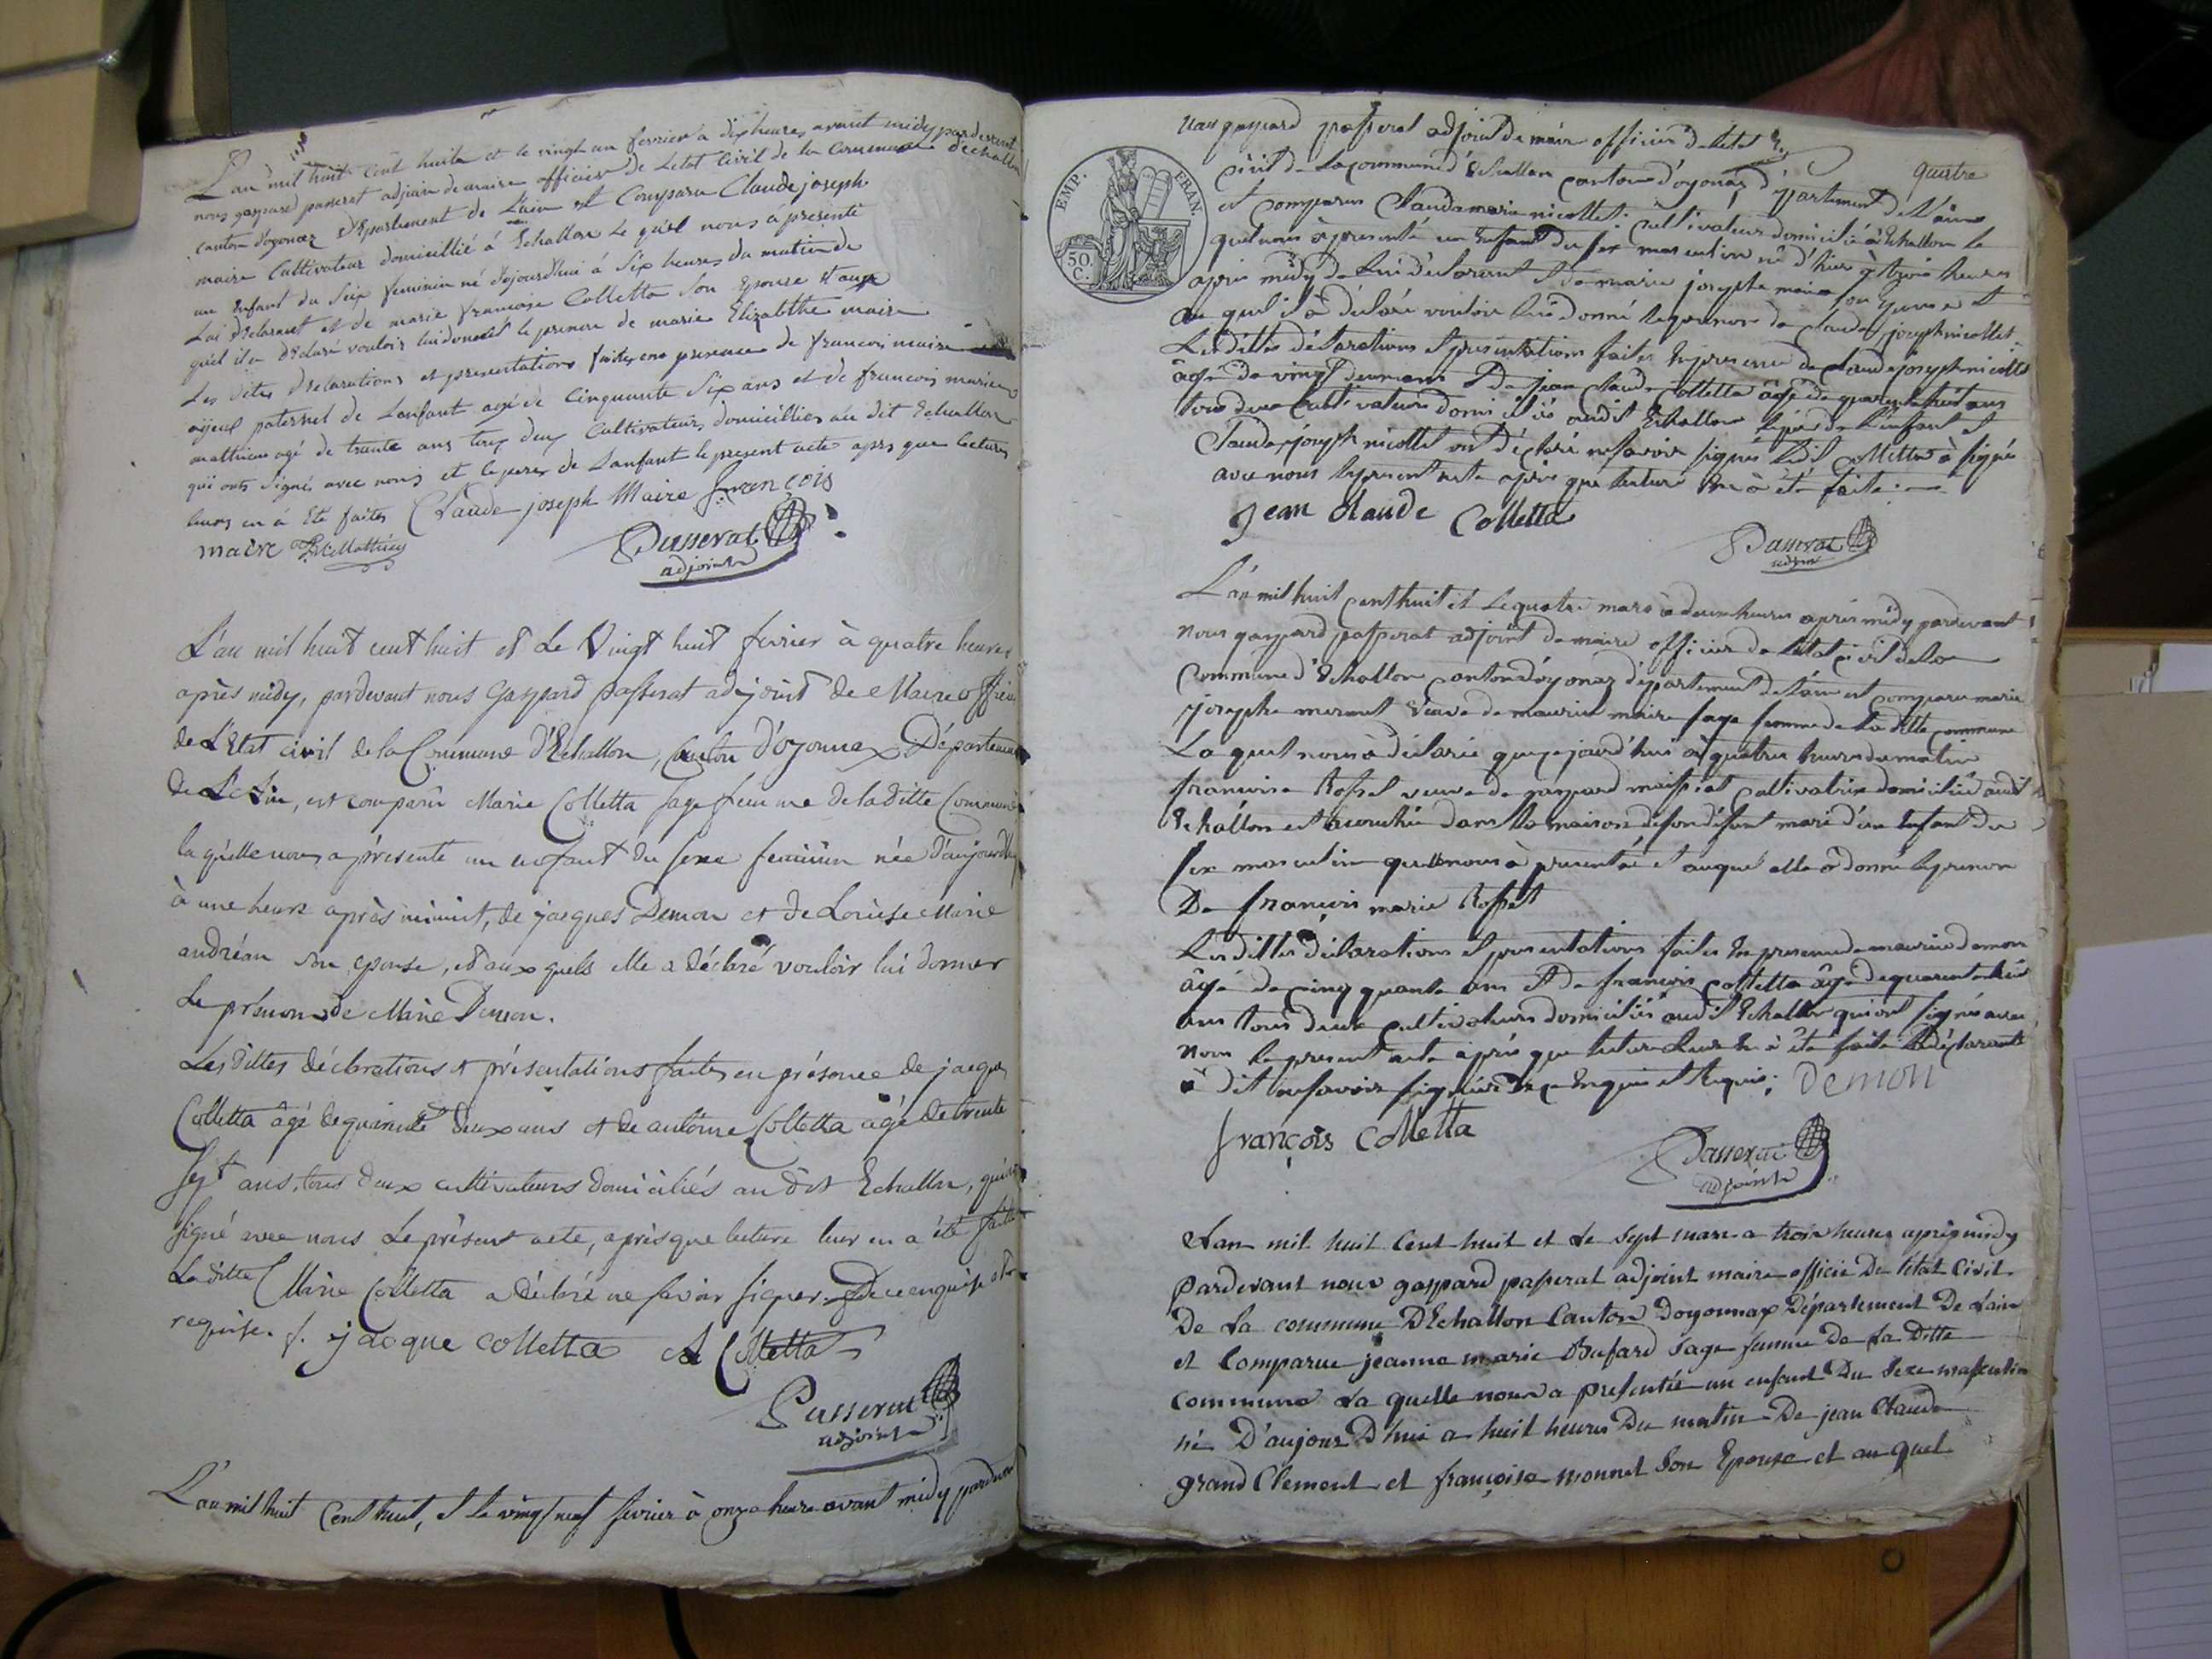 L'an mil huit cent huit et le vingt un fevrier a dix heures avant midy pardevant
nous gaspard passerat adjoin de maire officier de Letat Civil de la Commune d'echallon
canton d'oyonnax département de L'ain est Comparu Claude joseph
maire Cultivateur domicillié á Echallon Le quel nous a presenté
un Enfant du Sexe feminin né d'ajourd'hui á Six heures du matin de
Lui déclarant et de marie francoise Colletta Son Epouse et au
quel il a déclaré vouloir lui donner le prenon de marie Elizabthe maire
Les dites declarations et presentations faites en presence de francois maire
ajeul paternel de Lanfant agé de Cinquante Six ans et de francois marie
mathieu agé de trente ans tous deux Cultivateurs domicilliés au dit Echallon
qui onts Signés avec nous et le pere de Lanfant le present acte aprs que lectures
leurs en á Eté faites Claude joseph Maire françois
maire Mathieu
Passerat
adjoint
L'an mil huit cent huit et Le Vingt huit fevrier à quatre heures
après midy, pardevant nous Gaspard Passerat adjoint de Maire officier
de L'Etat civil de la Commune d'Echallon, Canton d'oyonnax Département
de L'Ain, est comparu Marie Colletta sage femme de la ditte Commune
la quelle nous a présenté un enfant du sexe feminin née d'aujourd'huy
à une heure après minuit, de jacques Demon et de Louise Marie
andréan son epouse, et aux quels elle a déclaré vouloir lui donner
Le prénom de Marie Demon.
Les dittes déclarations et présentations faites en présence de jacques
Colletta âgé de quarante deux ans et de antoine Colletta agé de trente
sept ans, tous deux cultivateurs domiciliés au dit Echallon, qui ont
signé avec nous Le présent acte, après que lecture leur en a été faite
La ditte Marie Colletta a déclaré ne savoir signer. De ce enquise et
requise. j jacque colletta A Colletta
Passerat
adjoint
L'an mil huit Cent huit, et le vingt neuf fevrier à onze heure avant midy pardevant
nous gaspard passerat adjoint de maire officier de letat
quatre
EMP. FRAN.
50.
C.
Civil de La commune d'Echallon canton d'oyonax département de L'ain
est comparus Claude marie nicollet cultivateur domicilié à Echallon le
quel nous à presenté un Enfant du sex masculin né d'hier à trois heures
après midy de Lui déclarant et de marie josephe maire son Epouse et
au quel il à déclaré vouloir lui donné le prenon de Claude joseph nicollet
Les dittes déclarations et presentations faites En presence de claude joseph nicollet
âgé de vingt deux ans et de jean claude Colletta âgé de quarente huit ans
tous deux Cultivateurs domiciliés audit Echallon le pere de L'enfant et
Claude joseph nicollet ont déclaré ne savoir signés Ledit Colletta à signé
avec nous le present acte après que lecture En à été faite.
Jean Claude Colletta
Passerat
adjoint
L'an mil huit cent huit et le quatre mars à deux heures après midy pardevant
nous gaspard passerat adjoint de maire officier de letat civil de la
Commune d'Echallon canton d'oyonax département de L'ain est comparu marie
josephe veuve de maurice maire sage femme de la ditte commune
La quel nous à déclarée que ce jourd'hui à quatre heures du matin
francoise Rosset veuve de gaspard cultivatrice domiciliée audit
Echallon est acouchée dans la maison de son défunt mari d'un Enfant du
sex masculin quelle nous à presentée et auquel elle à donné le prenon
De francois marie Rosset
Les dittes déclarations et presentations faites En presence de maurice demon
âgé de cinqquante ans et de francois colletta âgé de quarente huit
ans tous deux cultivateurs domiciliés audit Echallon qui ont signés avec
nous le present acte après que lecture leur En à été faite La déclarante
à dit ne savoir signer de ce Enquis et Requis. Demon
françois colletta
Passerat
adjoint
L'an mil huit Cent huit et Le sept mars a trois heures après midy
Pardevant nous gaspard passerat adjoint maire officié De letat Civil
De La commune D'Echallon Canton Doyonnax Département De Lain
et Comparue jeanne marie Bufard sage femme De La Ditte
Commune La quelle nous a presentée un enfant Du Sexe masculin
né D'aujour D'hui a huit heures Du matin De jean Claude
grand Clement et françoise monnet Son Epouse et au quel